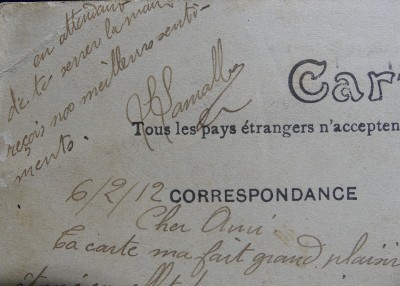 en attendant
de te serrer la main
reçois nos meilleurs senti-
ments.
Car
Tous les pays étrangers n'accepten
6/2/12 CORRESPONDANCE
Cher Ami
Ta carte ma fait grand plaisir